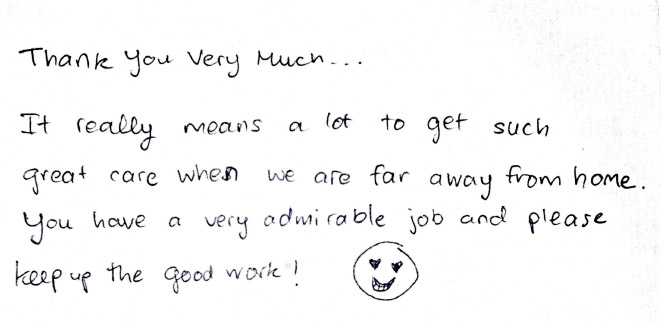 Thank you Very Much...
It really means a lot to get such
great care when we are far away from home.
You have a very admirable job and please
keep up the good work!